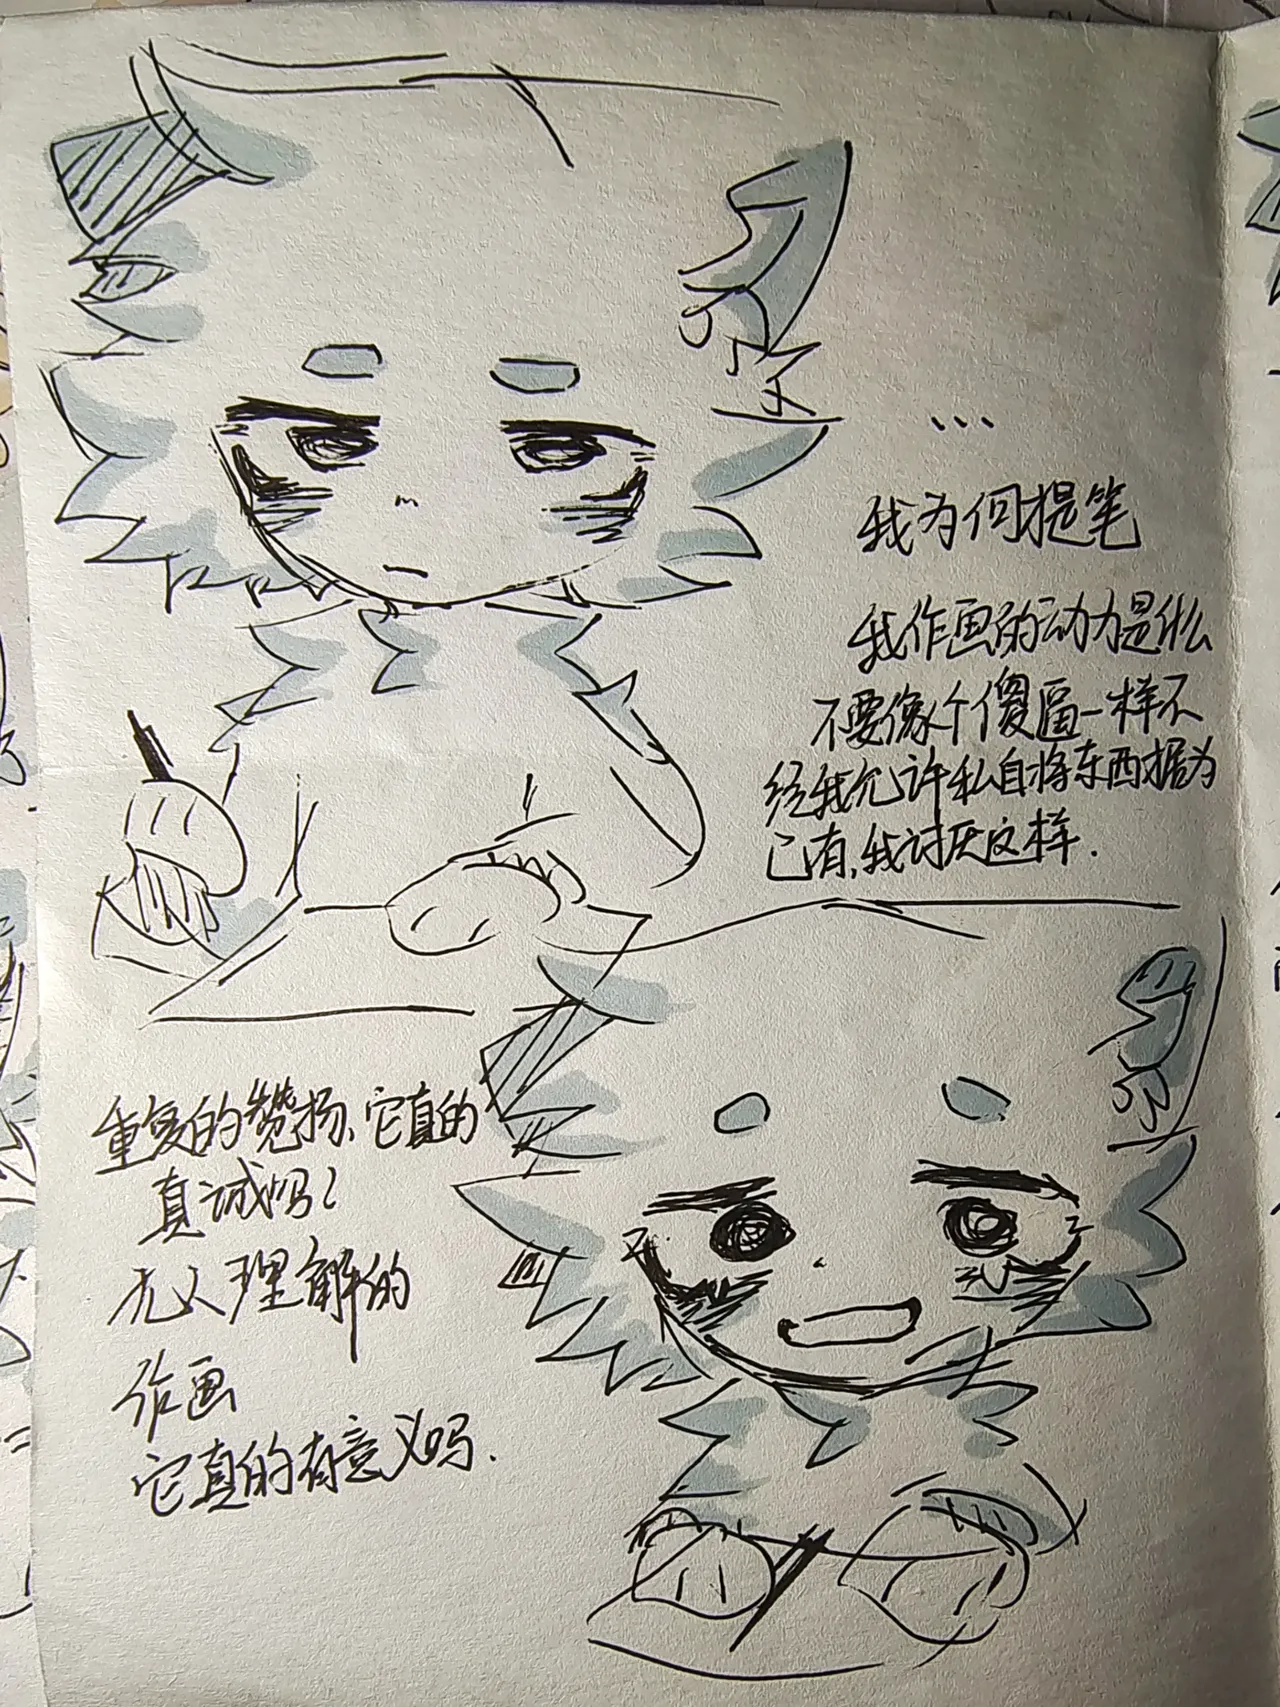 ...
我为何提笔
我作画的动力是什么
不要像个傻逼一样不
经我允许私自将东西据为
己有,我讨厌这样.
重复的赞扬、它真的
真诚吗?
无人理解的
作画
它真的有意义吗.